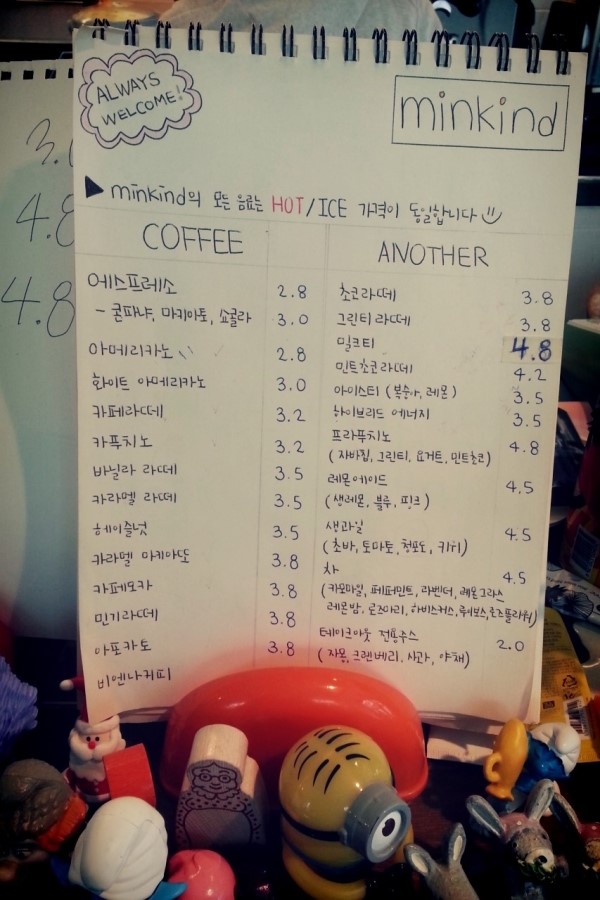 ALWAYS
WELCOME!
minkind
minkind의 모든 음료는 HOT/ICE 가격이 동일합니다
COFFEE
에스프레소 2.8
- 콘파냐, 마키아토, 쇼콜라 3.0
아메리카노 2.8
화이트 아메리카노 3.0
카페라떼 3.2
카푸치노 3.2
바닐라 라떼 3.5
카라멜 라떼 3.5
헤이즐넛 3.5
카라멜 마키아또 3.8
카페모카 3.8
민기라떼 3.8
아포카토 3.8
비엔나커피
ANOTHER
초코라떼 3.8
그린티라떼 3.8
밀크티 4.8
민트초코라떼 4.2
아이스티 (복숭아, 레몬) 3.5
하이브리드 에너지 3.5
프라푸치노 4.8
(자바칩, 그린티, 요거트, 민트초코)
레몬에이드 4.5
(생레몬, 블루, 핑크)
생과일 4.5
(초바, 토마토, 청포도, 키위)
차 4.5
(카모마일, 페퍼민트, 라벤더, 레몬그라스
레몬밤, 로즈마리, 하비스커스, 루이보스, 로즈플라워)
테이크아웃 전용주스 2.0
(자몽, 크랜베리, 사과, 야채)
4.8
4.8